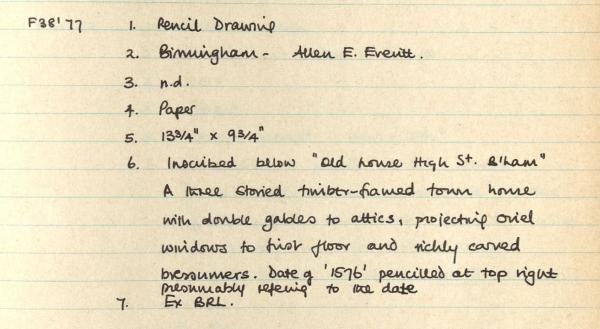 F38'77 1. Pencil Drawing
2. Birmingham - Allen E. Everitt.
3. n.d.
4. Paper
5. 13 3/4" x 9 3/4"
6. Inscribed below "Old house High St. B'ham"
A three storied timber-framed town house
with double gables to attics, projecting oriel
windows to first floor and richly carved
bressumers. Date of '1576' pencilled at top right
presumably refering to the date
7. Ex BRL.